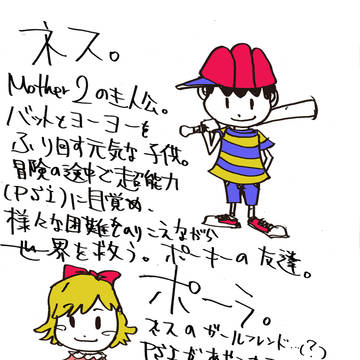 ネス。
Mother2の主人公。
バットとヨーヨーを
ふり回す元気な子供。
冒険の途中で超能力
(PSI)に目覚め、
様々な困難をのりこえながら
世界を救う。ポーキーの友達。
ポーラ。
ネスのガールフレンド…(?)